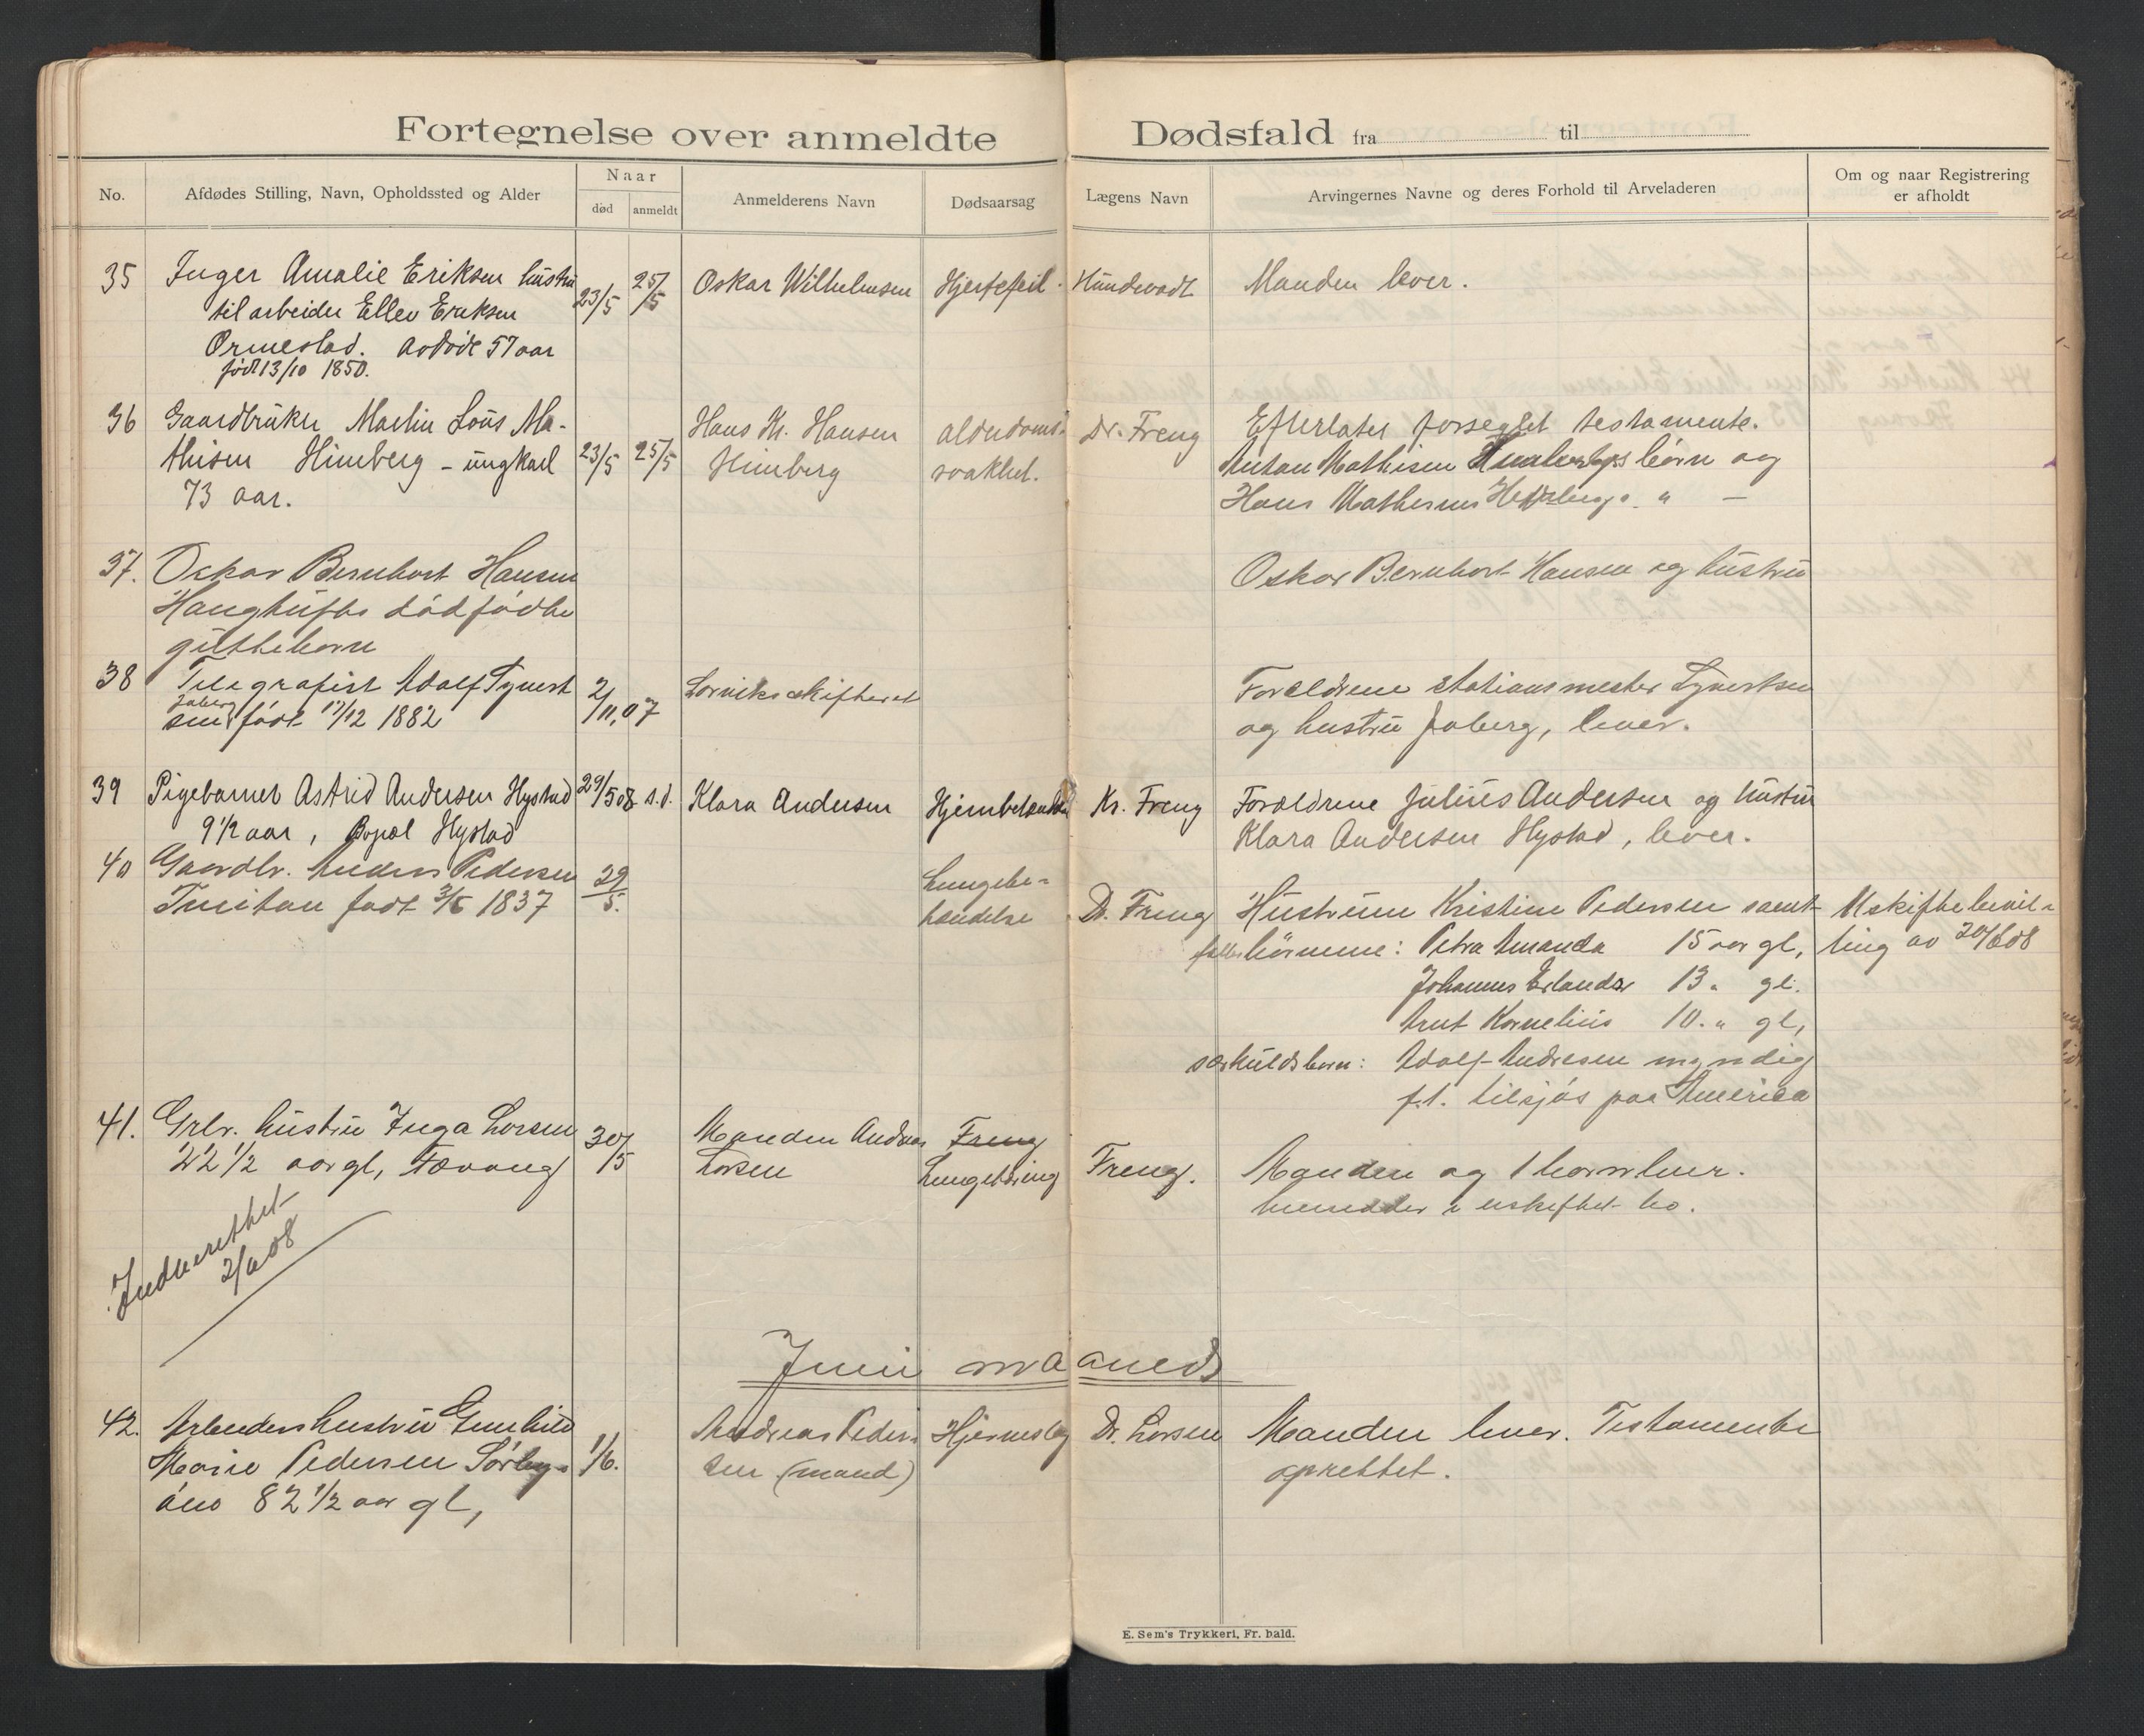 Fortegnelse over anmeldte Dødsfald fra til
No.
Afdødes Stilling, Navn, Opholdssted og Alder
Naar
død
anmeldt
Anmelderens Navn
Dødsaarsag
Lægens Navn
Arvingernes Navne og deres Forhold til Arveladeren
Om og naar Registrering
er afholdt
35 Inger Amalie Eriksen hustru 23/5 25/5 Oskar Wilhelmsen Hjertefeil. Hundevadt Manden lever.
til arbeider Ellev Eriksen
Ormestad. 57 aar
født 13/10 1850.
36 Gaardbruker Martin Ma-
thisen Himberg - ungkarl
73 aar.
23/5 25/5
Hans Kr. Hansen
Himberg
alderdoms-
svakhet.
Dr. Freng
Efterlater forseglet testamente.
Anton Mathisen børn og
Hans " —
37. Oskar Bernhart Hansen
dødfødte
guttebarn
Oskar Bernhart Hansen og hustru
38 Telegrafist Adolf Syvert
sen Jaberg født 17/12 1882
2/11, 07
Larviks skifteret
Forældrene stationsmester Syvertsen
og hustru Jaberg, lever.
39 Pigebarnet Astrid Andersen Hystad 29/5 08 s.d. Klara Andersen
9 1/2 aar, Bopæl Hystad
Kr. Freng
Forældrene Julius Andersen og hustru
Klara Andersen Hystad, lever.
40 Gaardbr. Anders Pedersen
født 3/5 1837
29/5.
Lungebe-
tændelse
Dr. Freng
Hustruen Kristine Pedersen samt
fælles børnene: Petra Amanda 15 aar gl,
Johannes Erlander 13 " gl.
Arnt Kornelius 10. " gl,
særkuldsbarn: Adolf Andresen myndig
f.t. tilsjøs paa America
Uskiftebevil-
ling av 20/6 08
41. Grbr. hustru Inga Larsen
22 1/2 aar gl,
30/5
Manden Andreas
Larsen
Freng
Freng.
Manden og 1 barn lever.
hensidder i uskiftet bo.
Indberettet
2/6 08
Juni maaned
42. Arbeiders hustru Gunhild
Marie Pedersen
82 1/2 aar gl,
1/6.
Andreas Peder-
sen (mand)
Dr. Larsen
Manden lever. Testamente
oprettet.
E. Sem's Trykkeri, Fr. hald.